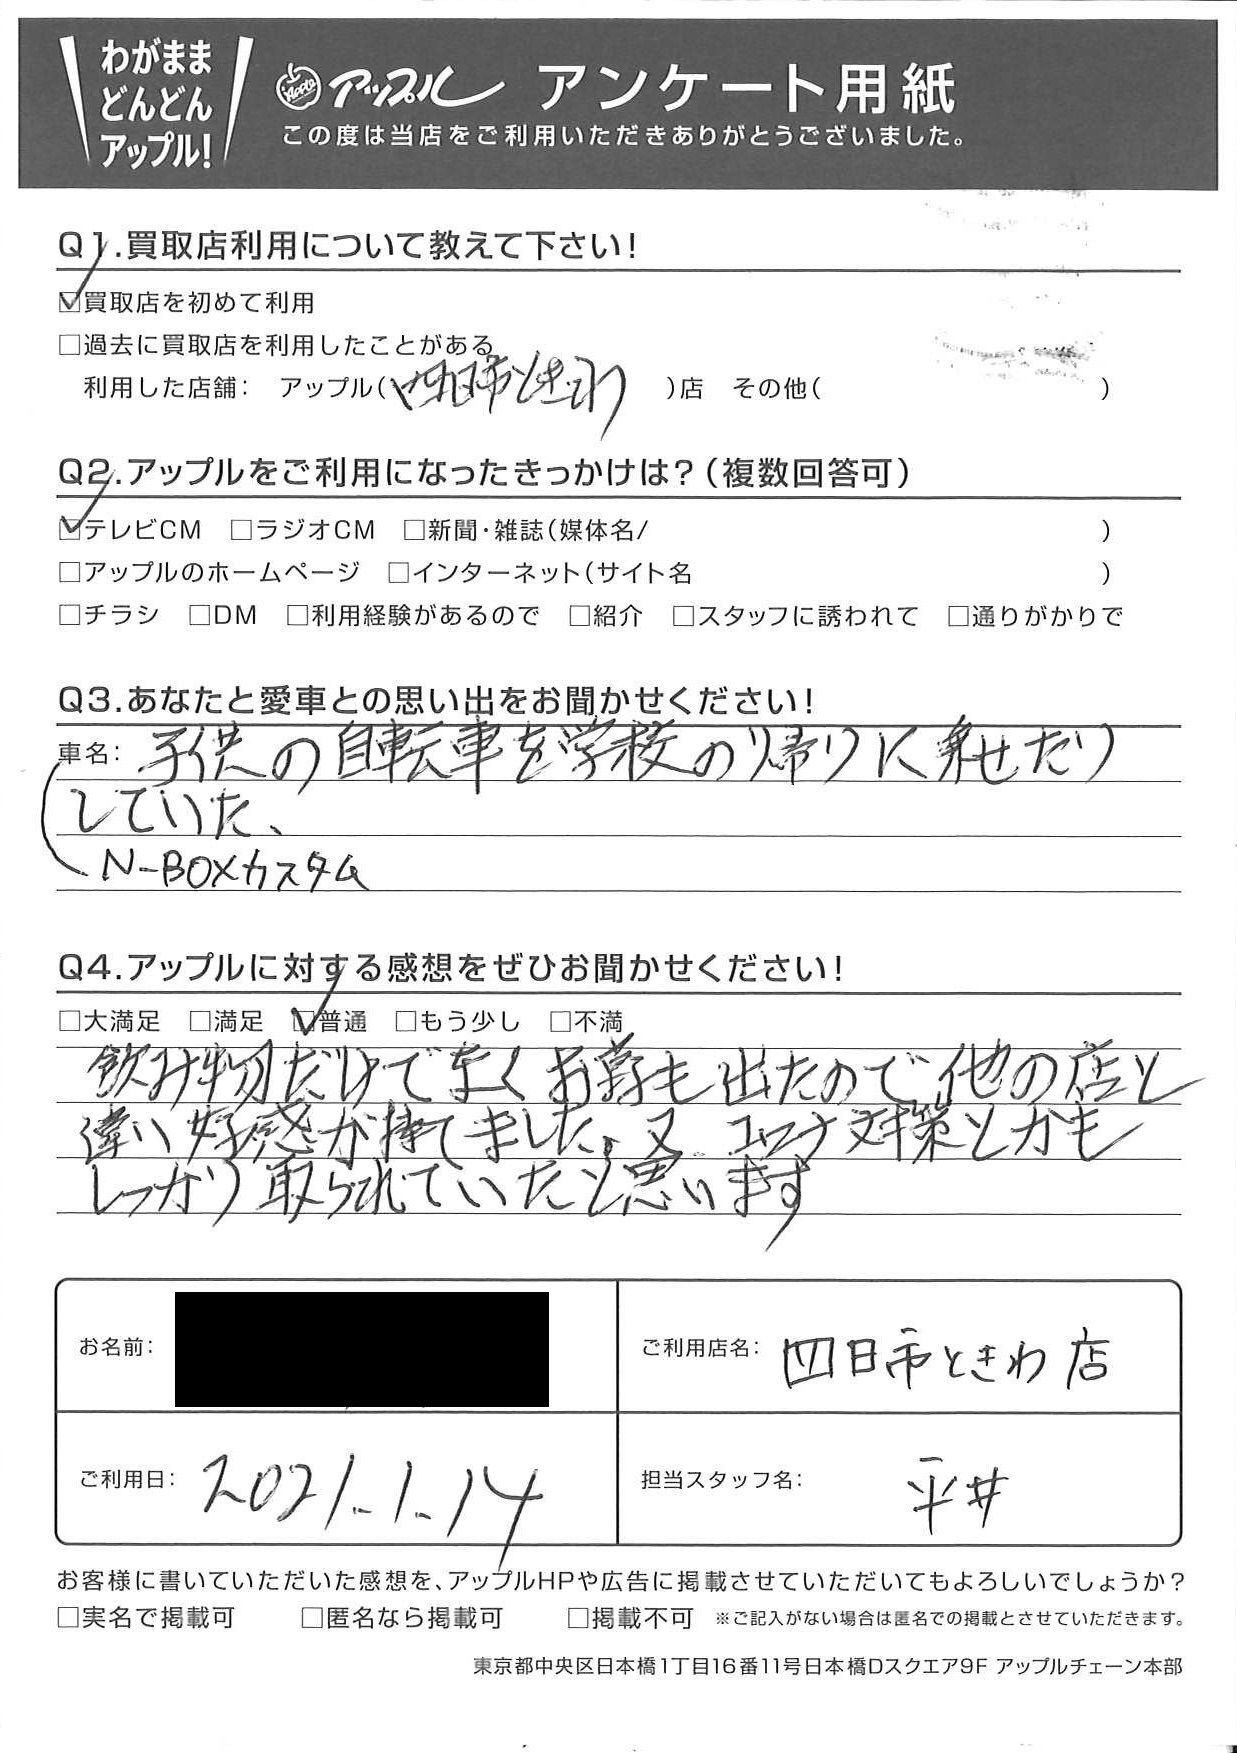 わがまま
どんどん
アップル!
Apple アップル アンケート用紙
この度は当店をご利用いただきありがとうございました。
Q1.買取店利用について教えて下さい!
☑買取店を初めて利用
□過去に買取店を利用したことがある
利用した店舗: アップル(四日市ときわ )店 その他( )
Q2.アップルをご利用になったきっかけは?(複数回答可)
☑テレビCM □ラジオCM □新聞・雑誌(媒体名/ )
□アップルのホームページ □インターネット(サイト名 )
□チラシ □DM □利用経験があるので □紹介 □スタッフに誘われて □通りがかりで
Q3.あなたと愛車との思い出をお聞かせください!
車名: 子供の自転車を学校の帰りに乗せたり
していた、
N-BOXカスタム
Q4.アップルに対する感想をぜひお聞かせください!
□大満足 □満足 ☑普通 □もう少し □不満
飲み物だけでなくお菓も出たので他の店と
違い好感が持てました。又コロナ対策とかも
しっかり取られていたと思います
お名前:
ご利用店名: 四日市ときわ店
ご利用日: 2021.1.14
担当スタッフ名: 平井
お客様に書いていただいた感想を、アップルHPや広告に掲載させていただいてもよろしいでしょうか?
□実名で掲載可 □匿名なら掲載可 □掲載不可 ※ご記入がない場合は匿名での掲載とさせていただきます。
東京都中央区日本橋1丁目16番11号日本橋Dスクエア9F アップルチェーン本部